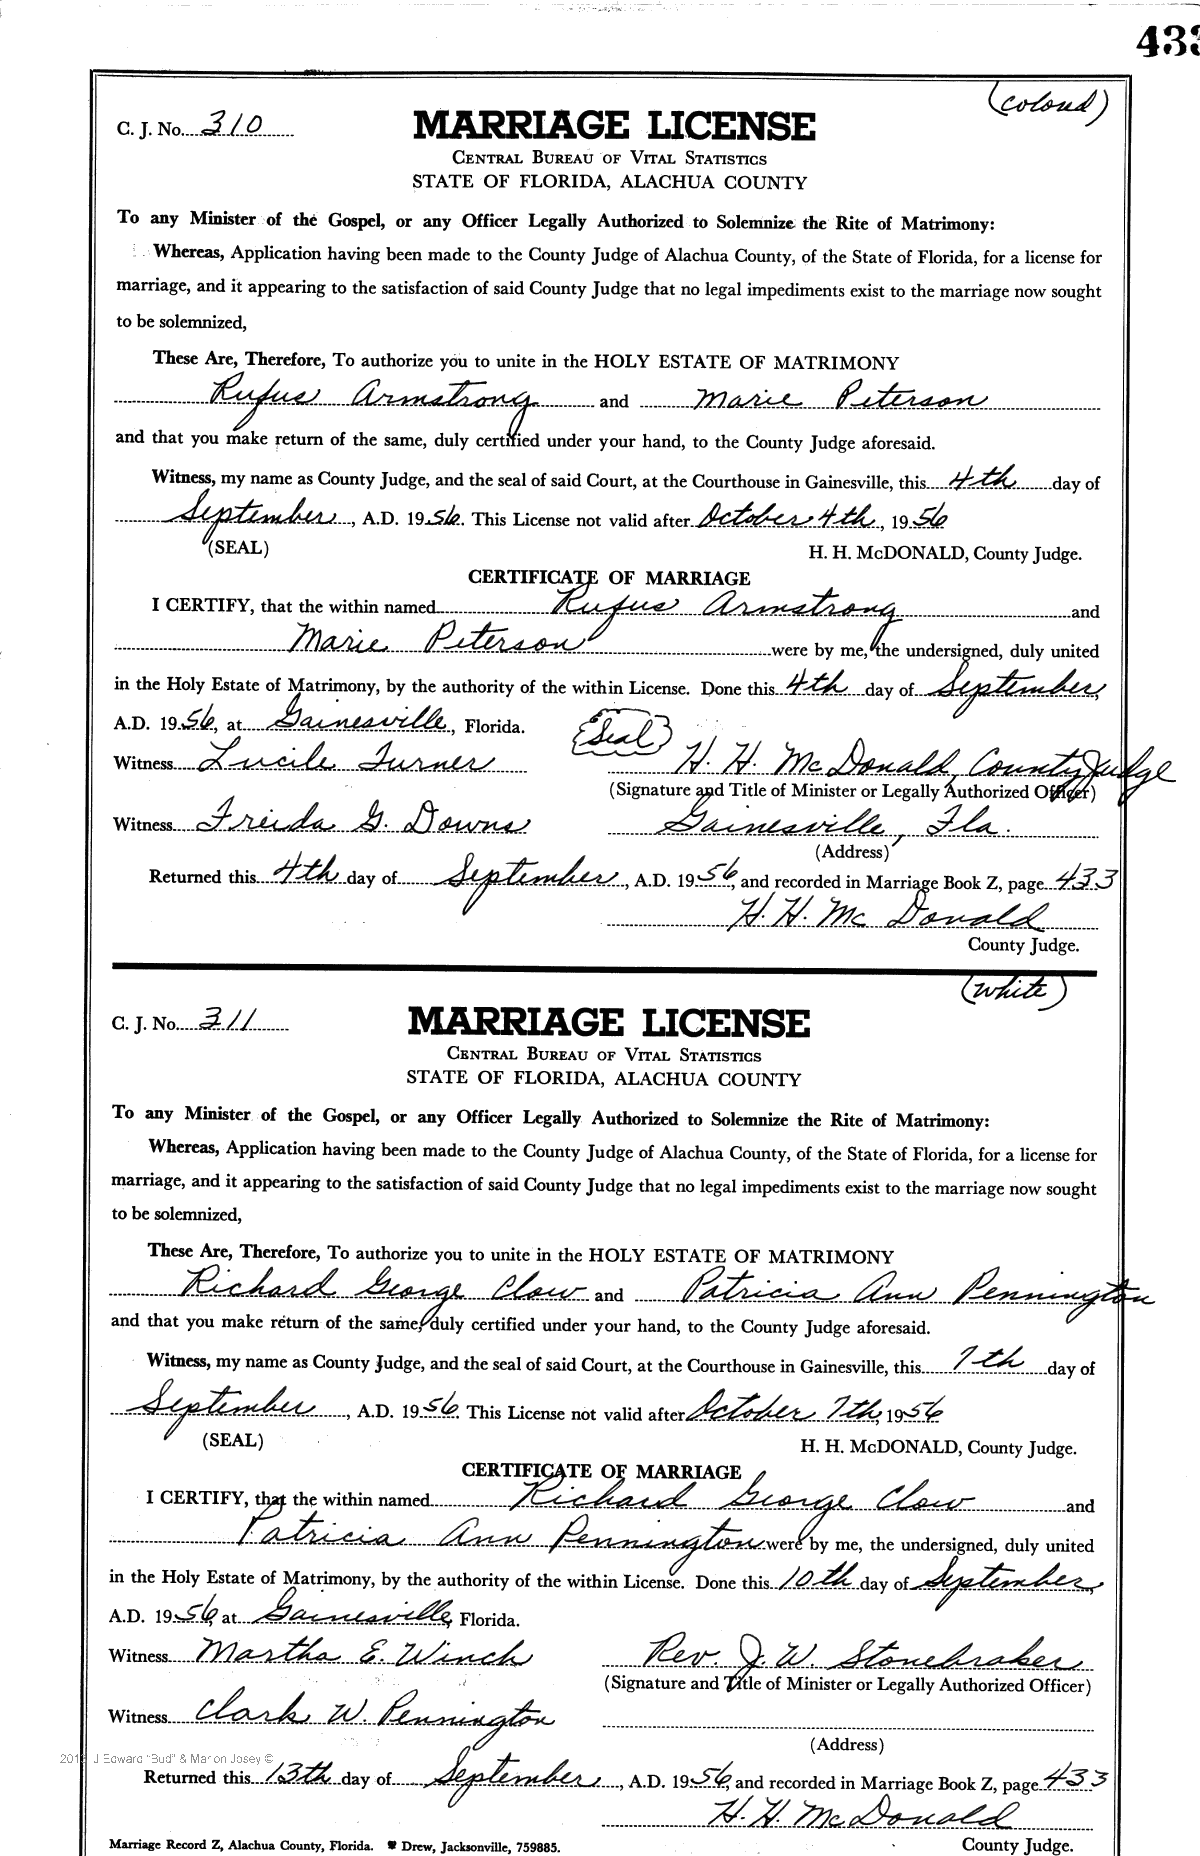 433
(colored)
C. J. No. 310
MARRIAGE LICENSE
CENTRAL BUREAU OF VITAL STATISTICS
STATE OF FLORIDA, ALACHUA COUNTY
To any Minister of the Gospel, or any Officer Legally Authorized to Solemnize the Rite of Matrimony:
Whereas, Application having been made to the County Judge of Alachua County, of the State of Florida, for a license for
marriage, and it appearing to the satisfaction of said County Judge that no legal impediments exist to the marriage now sought
to be solemnized,
These Are, Therefore, To authorize you to unite in the HOLY ESTATE OF MATRIMONY
Rufus Armstrong and Marie Peterson
and that you make return of the same, duly certified under your hand, to the County Judge aforesaid.
Witness, my name as County Judge, and the seal of said Court, at the Courthouse in Gainesville, this 4th day of
September, A.D. 1956. This License not valid after October 4th, 1956
(SEAL) H. H. McDONALD, County Judge.
CERTIFICATE OF MARRIAGE
I CERTIFY, that the within named Rufus Armstrong and
Marie Peterson were by me, the undersigned, duly united
in the Holy Estate of Matrimony, by the authority of the within License. Done this 4th day of September,
A.D. 1956, at Gainesville, Florida. (Seal)
Witness Lucile Turner H. H. McDonald, County Judge
(Signature and Title of Minister or Legally Authorized Officer)
Witness Freida G. Downs Gainesville, Fla.
(Address)
Returned this 4th day of September, A.D. 1956, and recorded in Marriage Book Z, page 433
H. H. McDonald
County Judge.
(white)
C. J. No. 311
MARRIAGE LICENSE
CENTRAL BUREAU OF VITAL STATISTICS
STATE OF FLORIDA, ALACHUA COUNTY
To any Minister of the Gospel, or any Officer Legally Authorized to Solemnize the Rite of Matrimony:
Whereas, Application having been made to the County Judge of Alachua County, of the State of Florida, for a license for
marriage, and it appearing to the satisfaction of said County Judge that no legal impediments exist to the marriage now sought
to be solemnized,
These Are, Therefore, To authorize you to unite in the HOLY ESTATE OF MATRIMONY
Richard George Clow and Patricia Ann Pennington
and that you make return of the same, duly certified under your hand, to the County Judge aforesaid.
Witness, my name as County Judge, and the seal of said Court, at the Courthouse in Gainesville, this 7th day of
September, A.D. 1956. This License not valid after October 7th, 1956
(SEAL) H. H. McDONALD, County Judge.
CERTIFICATE OF MARRIAGE
I CERTIFY, that the within named Richard George Clow and
Patricia Ann Pennington were by me, the undersigned, duly united
in the Holy Estate of Matrimony, by the authority of the within License. Done this 10th day of September,
A.D. 1956, at Gainesville, Florida.
Witness Martha E. Winch Rev. J. W. Stonebraker
(Signature and Title of Minister or Legally Authorized Officer)
Witness Clark W. Pennington
(Address)
J Edward "Bud" & Marion Josey ©
Returned this 13th day of September, A.D. 1956, and recorded in Marriage Book Z, page 433
H. H. McDonald
Marriage Record Z, Alachua County, Florida. Drew, Jacksonville, 759885. County Judge.